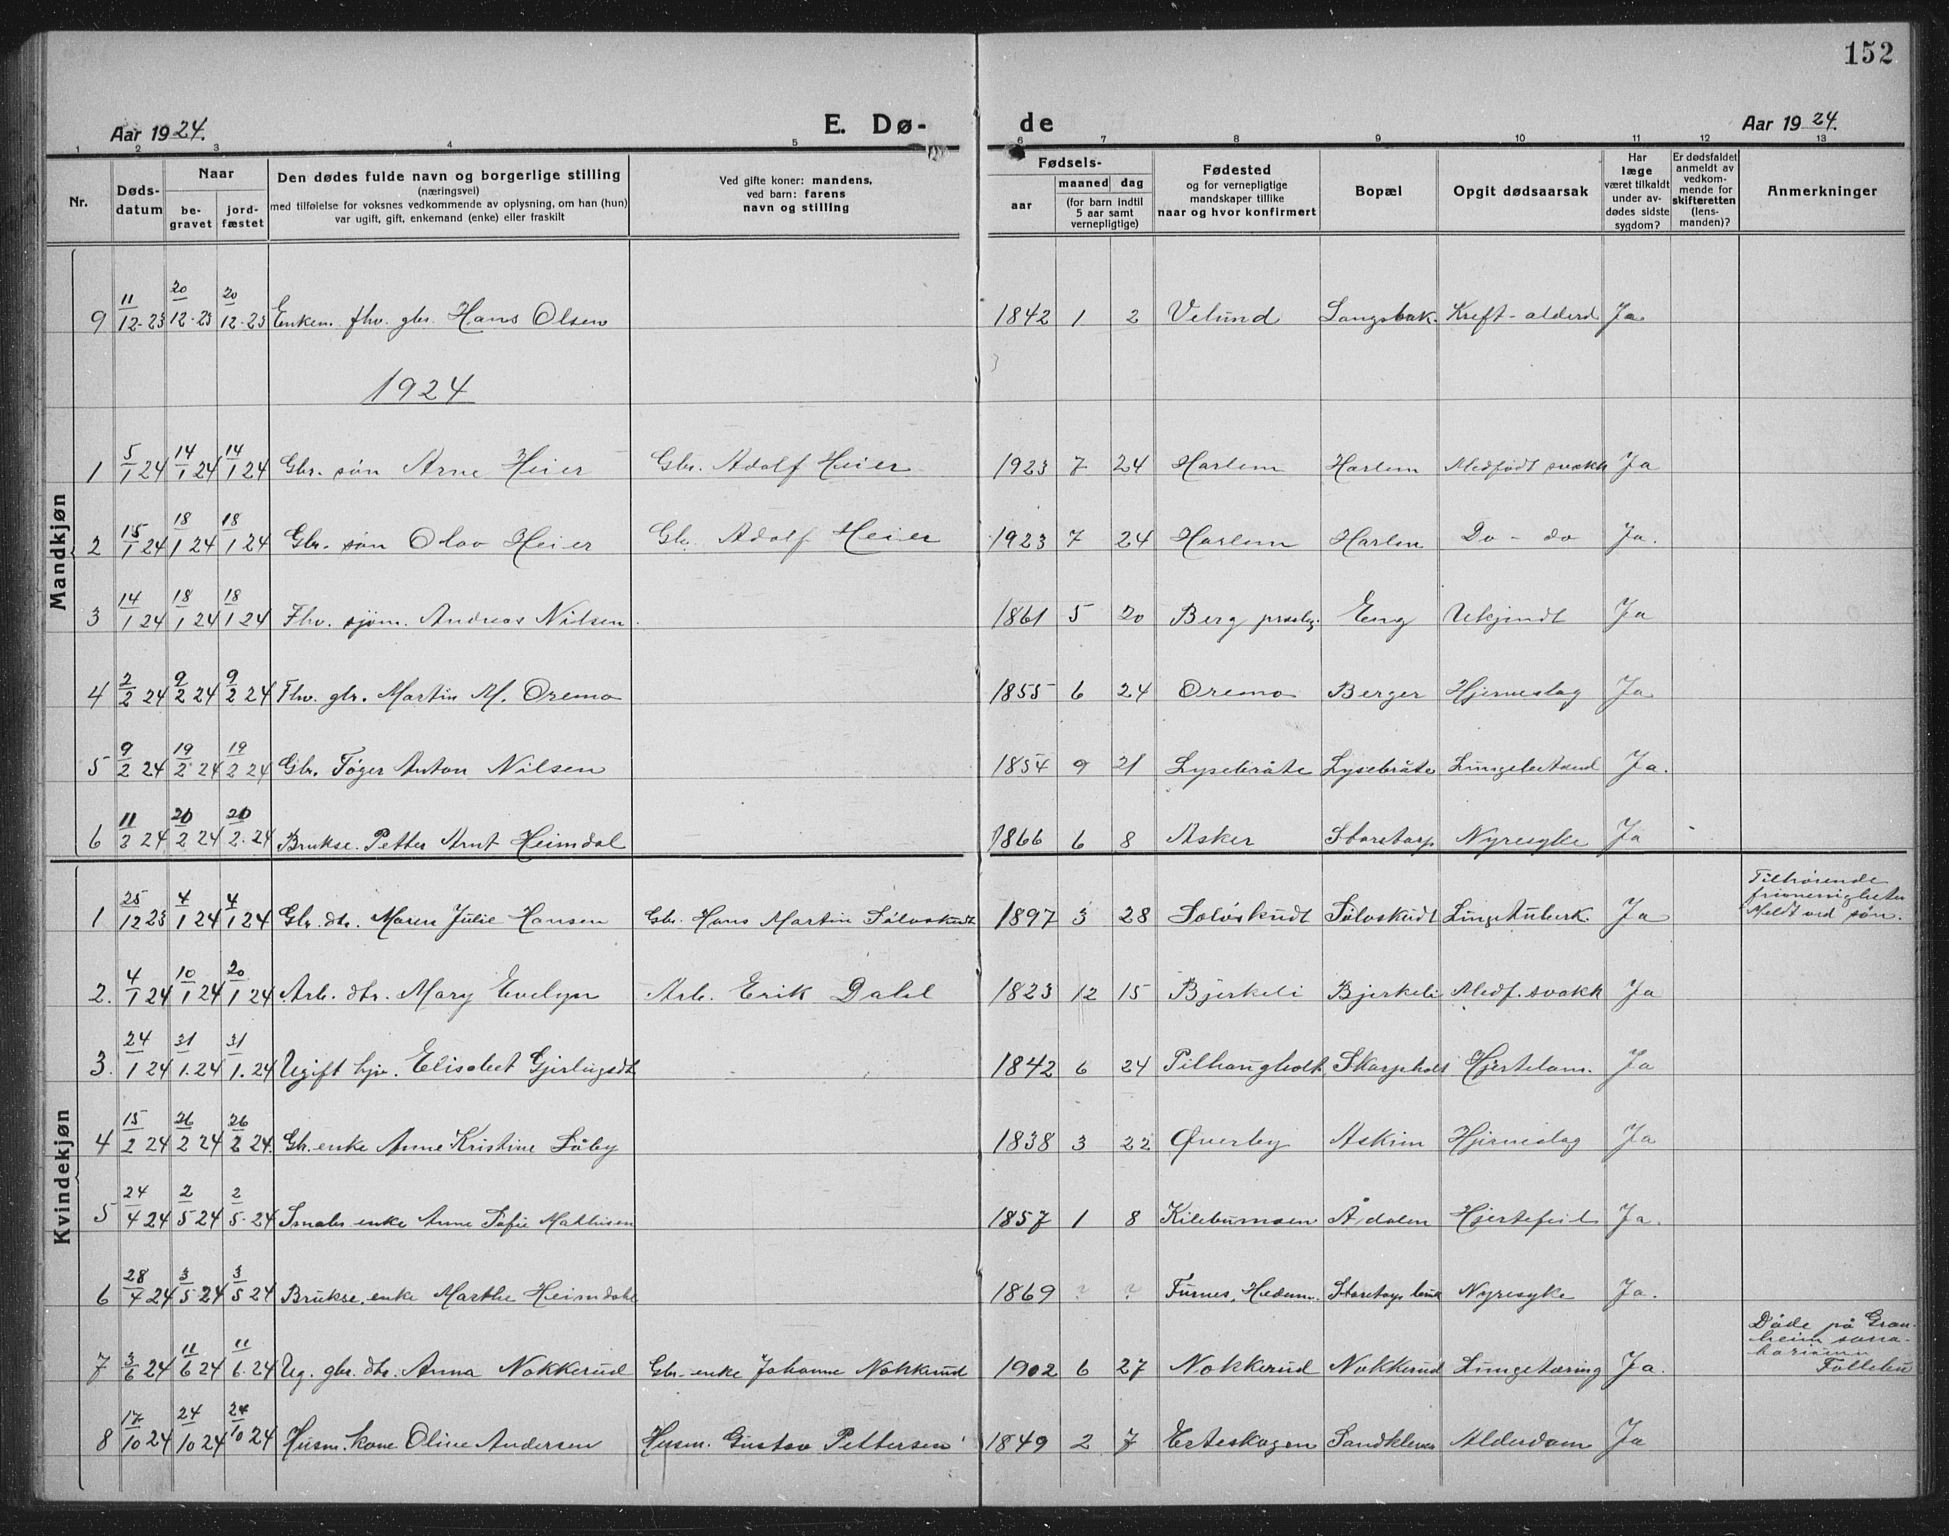 152
Aar 1924.
E. Dø-
de
Aar 1924.
1 2 3 4 5 6 7 8 9 10 11 12 13
Nr.
Døds-
datum
Naar
be-
gravet
jord-
fæstet
Den dødes fulde navn og borgerlige stilling
(næringsvei)
med tilføielse for voksnes vedkommende av oplysning, om han (hun)
var ugift, gift, enkemand (enke) eller fraskilt
Ved gifte koner: mandens,
ved barn: farens
navn og stilling
Fødsels-
aar
maaned dag
(for barn indtil
5 aar samt
vernepligtige)
Fødested
og for vernepligtige
mandskaper tillike
naar og hvor konfirmert
Bopæl
Opgit dødsaarsak
Har
læge
været tilkaldt
under av-
dødes sidste
sygdom?
Er dødsfaldet
anmeldt av
vedkom-
mende for
skifteretten
(lens-
manden)?
Anmerkninger
Mandkjøn
9 11/12-23 20/12-23 20/12-23 Enkem. fhv. gbr. Hans Olsen 1842 1 2 Velund Langsbak. Kreft - alderd Ja
1924
1 5/1 24 14/1 24 14/1 24 Gbr. søn Arne Heier Gbr. Adolf Heier 1923 7 24 Harlem Harlem Medfødt svakh Ja
2 15/1 24 18/1 24 18/1 24 Gbr. søn Olav Heier Gb. Adolf Heier 1923 7 24 Harlem Harlem Do - do Ja.
3 14/1 24 18/1 24 18/1 24 Fhv. sjøm. Andreas Nilsen 1861 5 20 Berg præstegj. Eng Ukjendt Ja
4 2/2 24 9/2 24 9/2 24 Fhv. gbr. Martin M. Oremo 1855 6 24 Oremo Berger Hjerneslag Ja
5 9/2 24 19/2 24 19/2 24 Gbr. Tøger Anton Nilsen 1854 9 21 Lysebråte Lysebråte Lungebetænd Ja.
6 11/2 24 20/2 24 20/2 24 Brukse. Petter Arnt Heimdal 1866 6 8 Asker Storetorp Nyresyke Ja
Kvindekjøn
1 25/12 23 4/1 24 4/1 24 Gbr. dtr. Maren Julie Hansen Gbr. Hans Martin Sølvskudt 1897 3 28 Solvskudt Sølvskudt Lungetuberk. Ja Tilhørende
frimenigheten
Meldt ved søn.
2. 4/1 24 10/1 24 20/1 24 Arb. dtr. Mary Evelyn Arb. Erik Dahl 1823 12 15 Bjerkeli Bjerkeli Medf. svakh Ja
3. 24/1 24 31/1.24 31/1.24 Ugift hje. Elisabet 1842 6 24 Pilhaugholt Skarpholt Hjertelam. Ja
4 15/2 24 26/2 24 26/2 24. Gb. enke Anne Kristine Løby 1838 3 22 Øverby Askim Hjerneslag Ja
5 24/4 24 2/5 24 2/5-24 Smabr. enke Anne Sofie Mathisen 1857 1 8 Kilebumoen Ådalen Hjertefeil Ja.
6 28/4 24 3/5 24 3/5 24 Brukse. enke Marthe Heimdahl 1869 ? ? Furnes, Hedem. Storetorp bruk Nyresyke Ja.
7 3/6 24 11/6 24 11/6.24 Ug. gbr. dtr. Anna Nokkerud Gbr. enke Johanne Nokkerud 1902 6 27 Nokkerud Nokkerud Lungetæring Ja. Døde på Gran-
heim sana-
torium
Follebu
8 17/10 24 24/10 24 24/10 24 Husm. kone Oline Andersen Husm. Gustav Pettersen 1849 2 7 Erteskogen Sandkleven Alderdom Ja